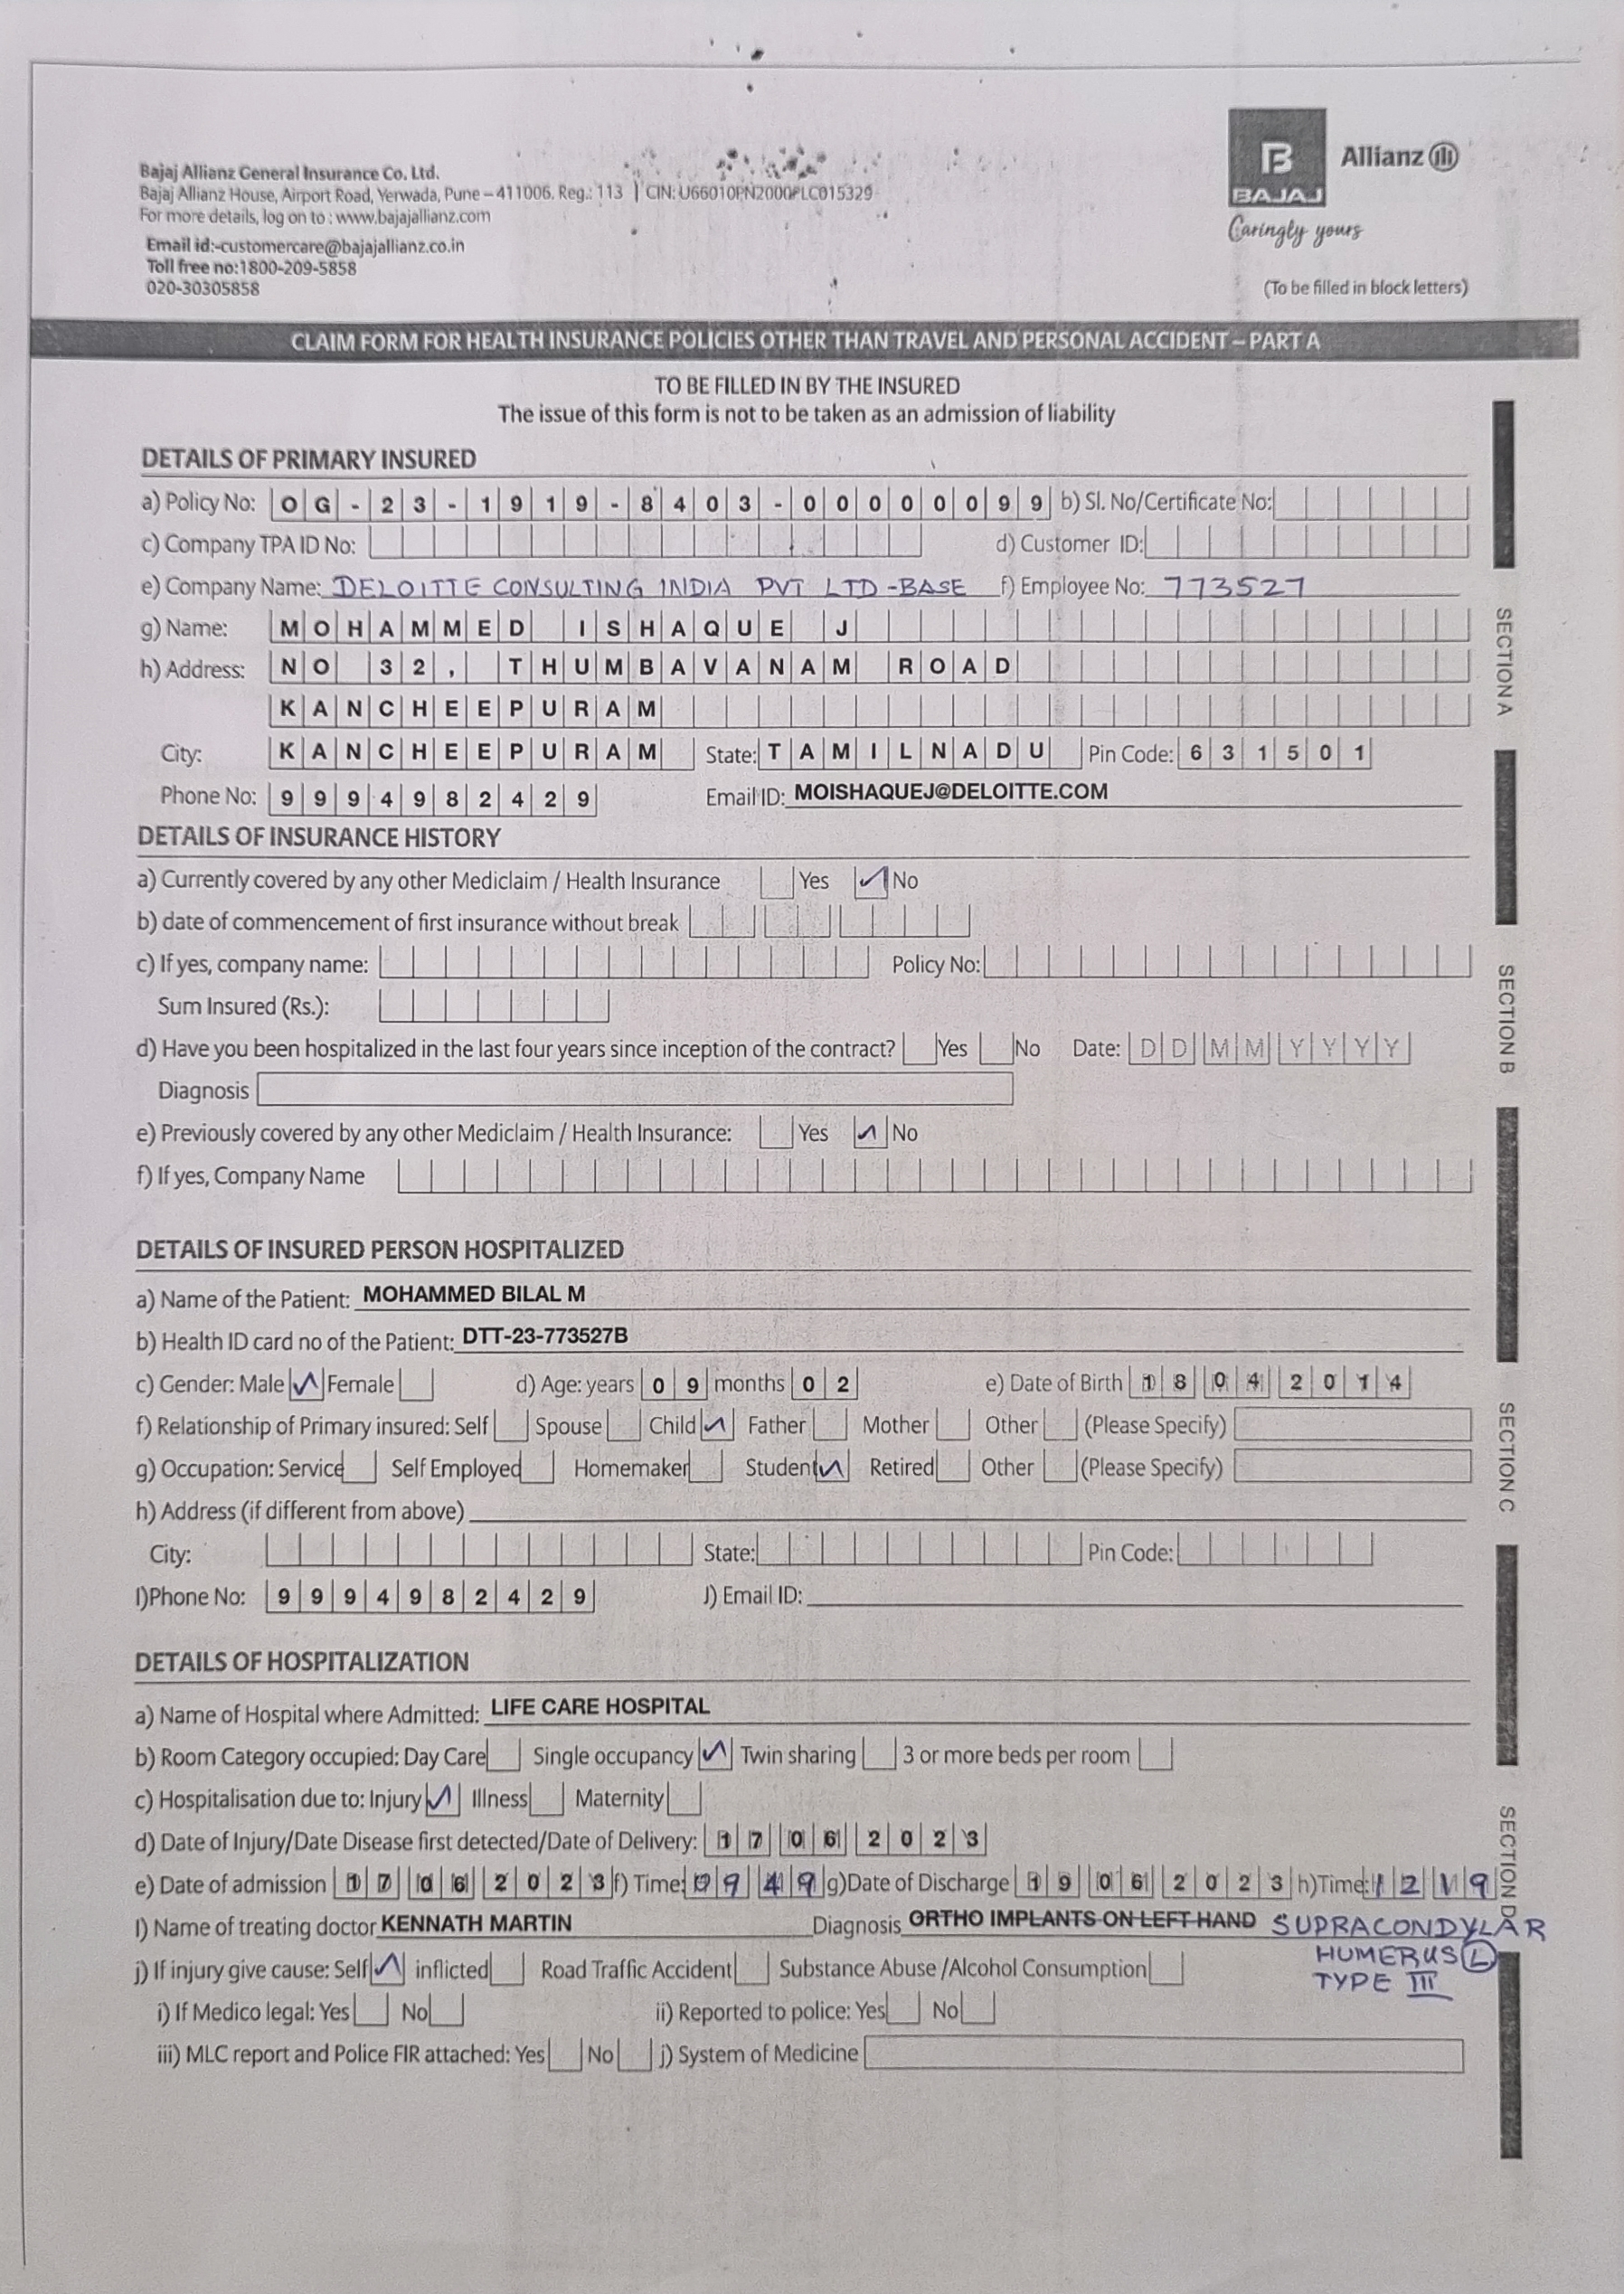 Bajaj Allianz General Insurance Co. Ltd.
Bajaj Allianz House, Airport Road, Yerwada, Pune – 411006. Reg.: 113 | CIN: U66010PN2000PLC015329
For more details, log on to : www.bajajallianz.com
Email id:-customercare@bajajallianz.co.in
Toll free no:1800-209-5858
020-30305858
B BAJAJ Allianz
Caringly yours
(To be filled in block letters)
CLAIM FORM FOR HEALTH INSURANCE POLICIES OTHER THAN TRAVEL AND PERSONAL ACCIDENT – PART A
TO BE FILLED IN BY THE INSURED
The issue of this form is not to be taken as an admission of liability
DETAILS OF PRIMARY INSURED
a) Policy No: OG-23-1919-8403-00000099 b) Sl. No/Certificate No:
c) Company TPA ID No: d) Customer ID:
e) Company Name: DELOITTE CONSULTING INDIA PVT LTD -BASE f) Employee No: 773527
g) Name: MOHAMMED ISHAQUE J
h) Address: NO 32, THUMBAVANAM ROAD
KANCHEEPURAM
City: KANCHEEPURAM State: TAMILNADU Pin Code: 631501
Phone No: 9994982429 Email ID: MOISHAQUEJ@DELOITTE.COM
SECTION A
DETAILS OF INSURANCE HISTORY
a) Currently covered by any other Mediclaim / Health Insurance Yes ✓ No
b) date of commencement of first insurance without break
c) If yes, company name: Policy No:
Sum Insured (Rs.):
d) Have you been hospitalized in the last four years since inception of the contract? Yes No Date: DD MM YYYY
Diagnosis
e) Previously covered by any other Mediclaim / Health Insurance: Yes ✓ No
f) If yes, Company Name
SECTION B
DETAILS OF INSURED PERSON HOSPITALIZED
a) Name of the Patient: MOHAMMED BILAL M
b) Health ID card no of the Patient: DTT-23-773527B
c) Gender: Male ✓ Female d) Age: years 09 months 02 e) Date of Birth 18 04 2014
f) Relationship of Primary insured: Self Spouse Child ✓ Father Mother Other (Please Specify)
g) Occupation: Service Self Employed Homemaker Student ✓ Retired Other (Please Specify)
h) Address (if different from above)
City: State: Pin Code:
I)Phone No: 9994982429 J) Email ID:
SECTION C
DETAILS OF HOSPITALIZATION
a) Name of Hospital where Admitted: LIFE CARE HOSPITAL
b) Room Category occupied: Day Care Single occupancy ✓ Twin sharing 3 or more beds per room
c) Hospitalisation due to: Injury ✓ Illness Maternity
d) Date of Injury/Date Disease first detected/Date of Delivery: 17 06 2023
e) Date of admission 17 06 2023 f) Time: 09 49 g)Date of Discharge 19 06 2023 h)Time: 12 19
I) Name of treating doctor KENNATH MARTIN Diagnosis ORTHO IMPLANTS ON LEFT HAND SUPRACONDYLAR
HUMERUS (L)
TYPE III
j) If injury give cause: Self ✓ inflicted Road Traffic Accident Substance Abuse /Alcohol Consumption
i) If Medico legal: Yes No ii) Reported to police: Yes No
iii) MLC report and Police FIR attached: Yes No j) System of Medicine
SECTION D